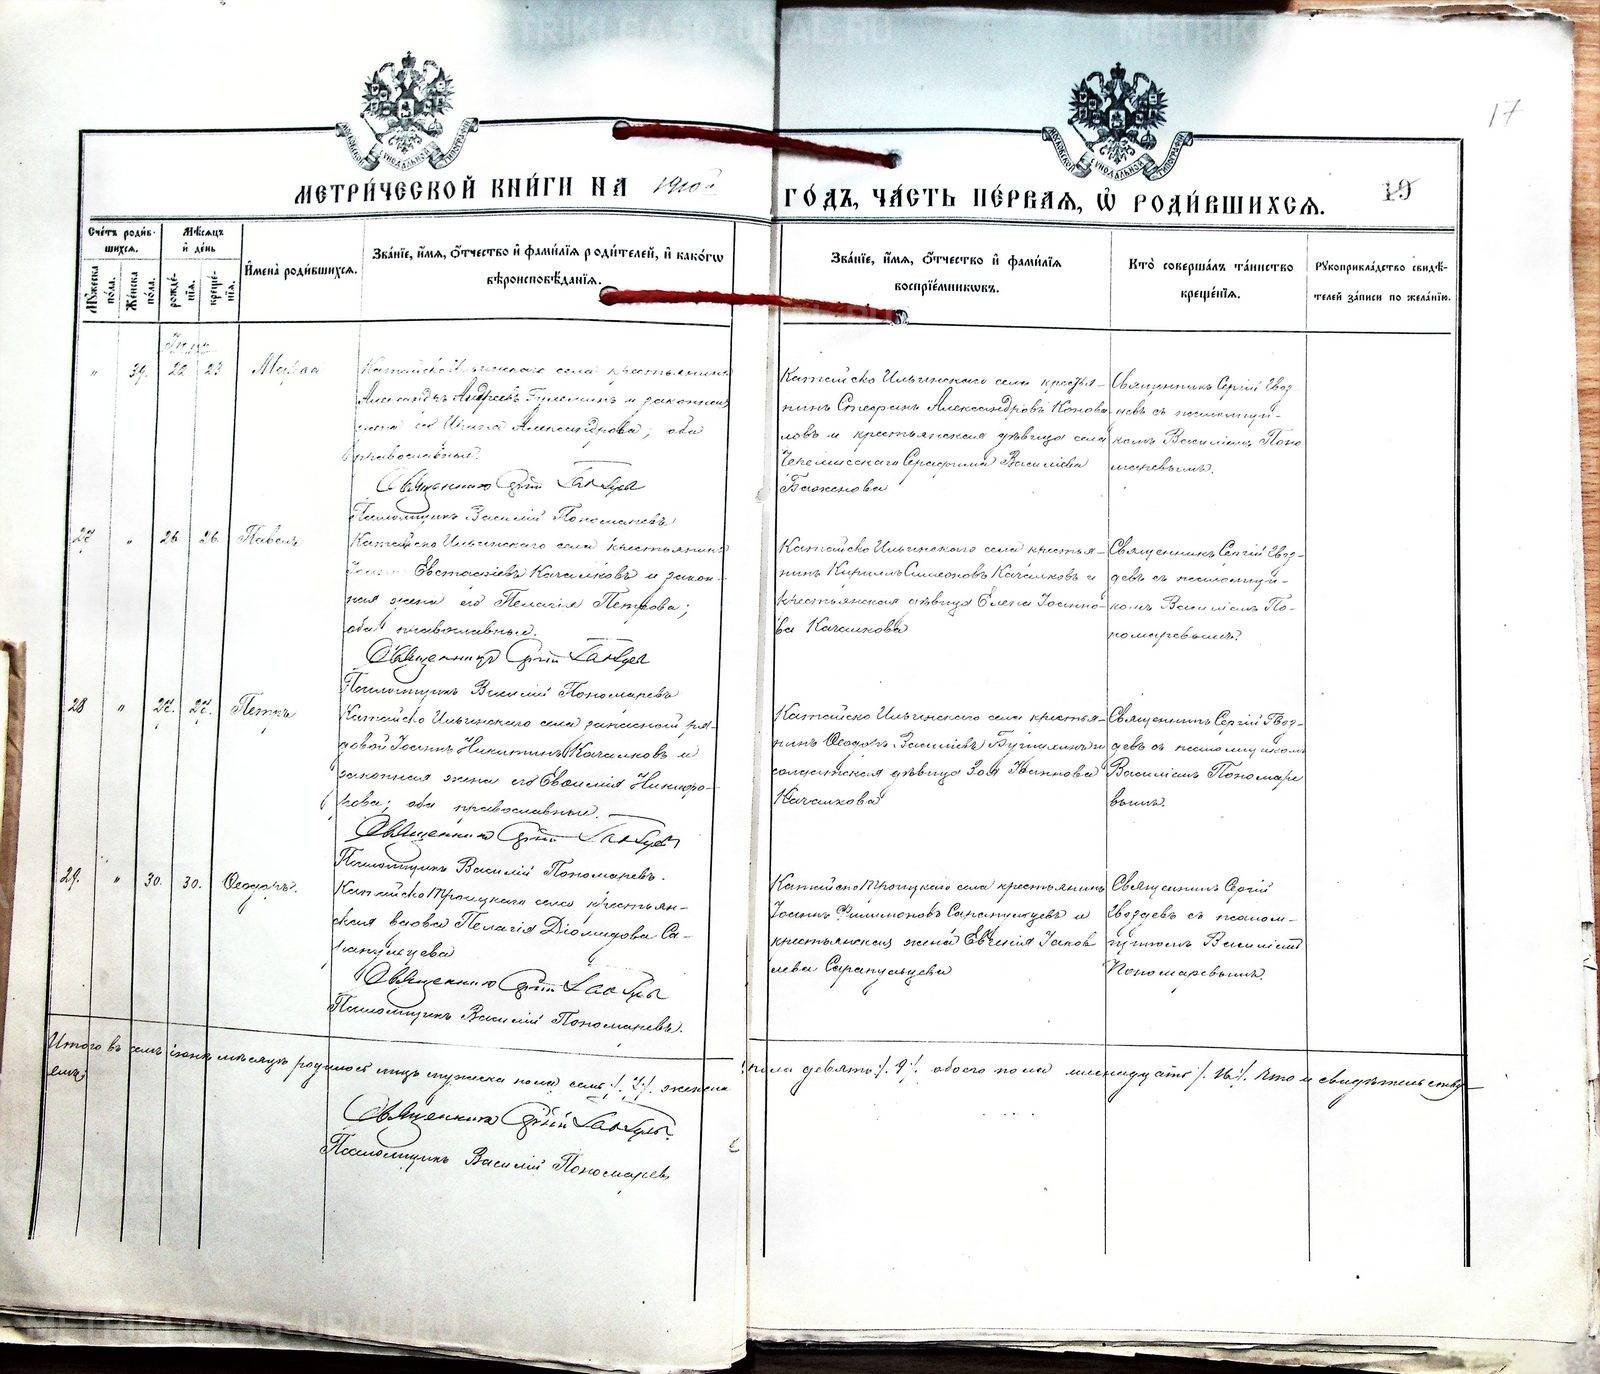 METRIKI.GASO-URAL.RU
17
МЕТРИ́ЧЕСКОЙ КНИ́ГИ НА 1910й ГО́ДЪ, ЧА́СТЬ ПЕ́РВАЯ, Ѡ РОДИ́ВШИХСЯ.
19
Счétъ роди́вшихся.
Мѣ́сяцъ и҆ де́нь
Мꙋ́жеска по́ла.
Же́нска по́ла.
рожде́нїя.
креще́нїя.
И҆мена̀ роди́вшихся.
Зва́нїе, и҆́мя, ѻ҆́тчество и҆ фами́лїя роди́телей, и҆ како́гѡ
вѣроисповѣ́данїя.
Зва́нїе, и҆́мя, ѻ҆́тчество и҆ фами́лїя
воспрїе́мникѡвъ.
Кто̀ соверша́лъ та́инство
креще́нїя.
Рꙋкоприкла́дство свидѣ́-
телей за́писи по жела́нїю.
Іюнь
" 39. 22 23
Катайско Ильинскаго села крестьянинъ
Александръ Андреевъ и законная
жена его Александрова; оба
православные.
Священникъ Сергій
Псаломщикъ Василій Пономаревъ
Катайско Ильинскаго села крестья-
нинъ Стефанъ Александровъ Конова
ловъ и крестьянская дѣвица села
Черемисскаго Серафима Василіева
Баженова
Священникъ Сергій Гвоз-
девъ съ псаломщи-
комъ Василіемъ Поно
маревымъ.
27 " 26 26 Павелъ
Катайско Ильинскаго села крестьянинъ
Іоаннъ Евстафіевъ Качалковъ и закон-
ная жена его Пелагія Петрова;
оба православные.
Священникъ Сергій
Псаломщикъ Василій Пономаревъ
Катайско Ильинскаго села крестья-
нинъ Кириллъ Симеоновъ Качалковъ и
крестьянская дѣвица Елена Іоанно-
ва Качалкова
Священникъ Сергій Гвоз-
девъ съ псаломщи-
комъ Василіемъ По-
номаревымъ.
28 " 27. 27. Петръ
Катайско Ильинскаго села запасной ря-
довой Іоаннъ Никитинъ Качалковъ и
законная жена его Евфимія Никифо-
рова; оба православные.
Священникъ Сергій
Псаломщикъ Василій Пономаревъ.
Катайско Ильинскаго села крестья-
нинъ Ѳеодоръ Василіевъ и
солдатская дѣвица Зоя Іоаннова
Качалкова
Священникъ Сергій Гвоз-
девъ съ псаломщикомъ
Василіемъ Пономаре
вымъ.
29. " 30. 30. Ѳеодоръ.
Катайско Троицкаго села крестьян-
ская вдова Пелагія Діомидова Са-
рапульцева
Священникъ Сергій
Псаломщикъ Василій Пономаревъ.
Катайско Троицкаго села крестьянинъ
Іоаннъ Филимоновъ Сарапульцевъ и
крестьянская жена Евгенія Іаков
лева Сарапульцева
Священникъ Сергій
Гвоздевъ съ псалом-
щикомъ Василіемъ
Пономаревымъ.
Итого въ семъ іюнѣ мѣсяцѣ родилось лицъ мужеска пола семь /. 7 /. женска
пола девять /. 9 /. обоего пола шеснадцать /. 16 /. что и свидѣтельству-
емъ:
Священникъ Сергій
Псаломщикъ Василій Пономаревъ
METRIKI.GASO-URAL.RU